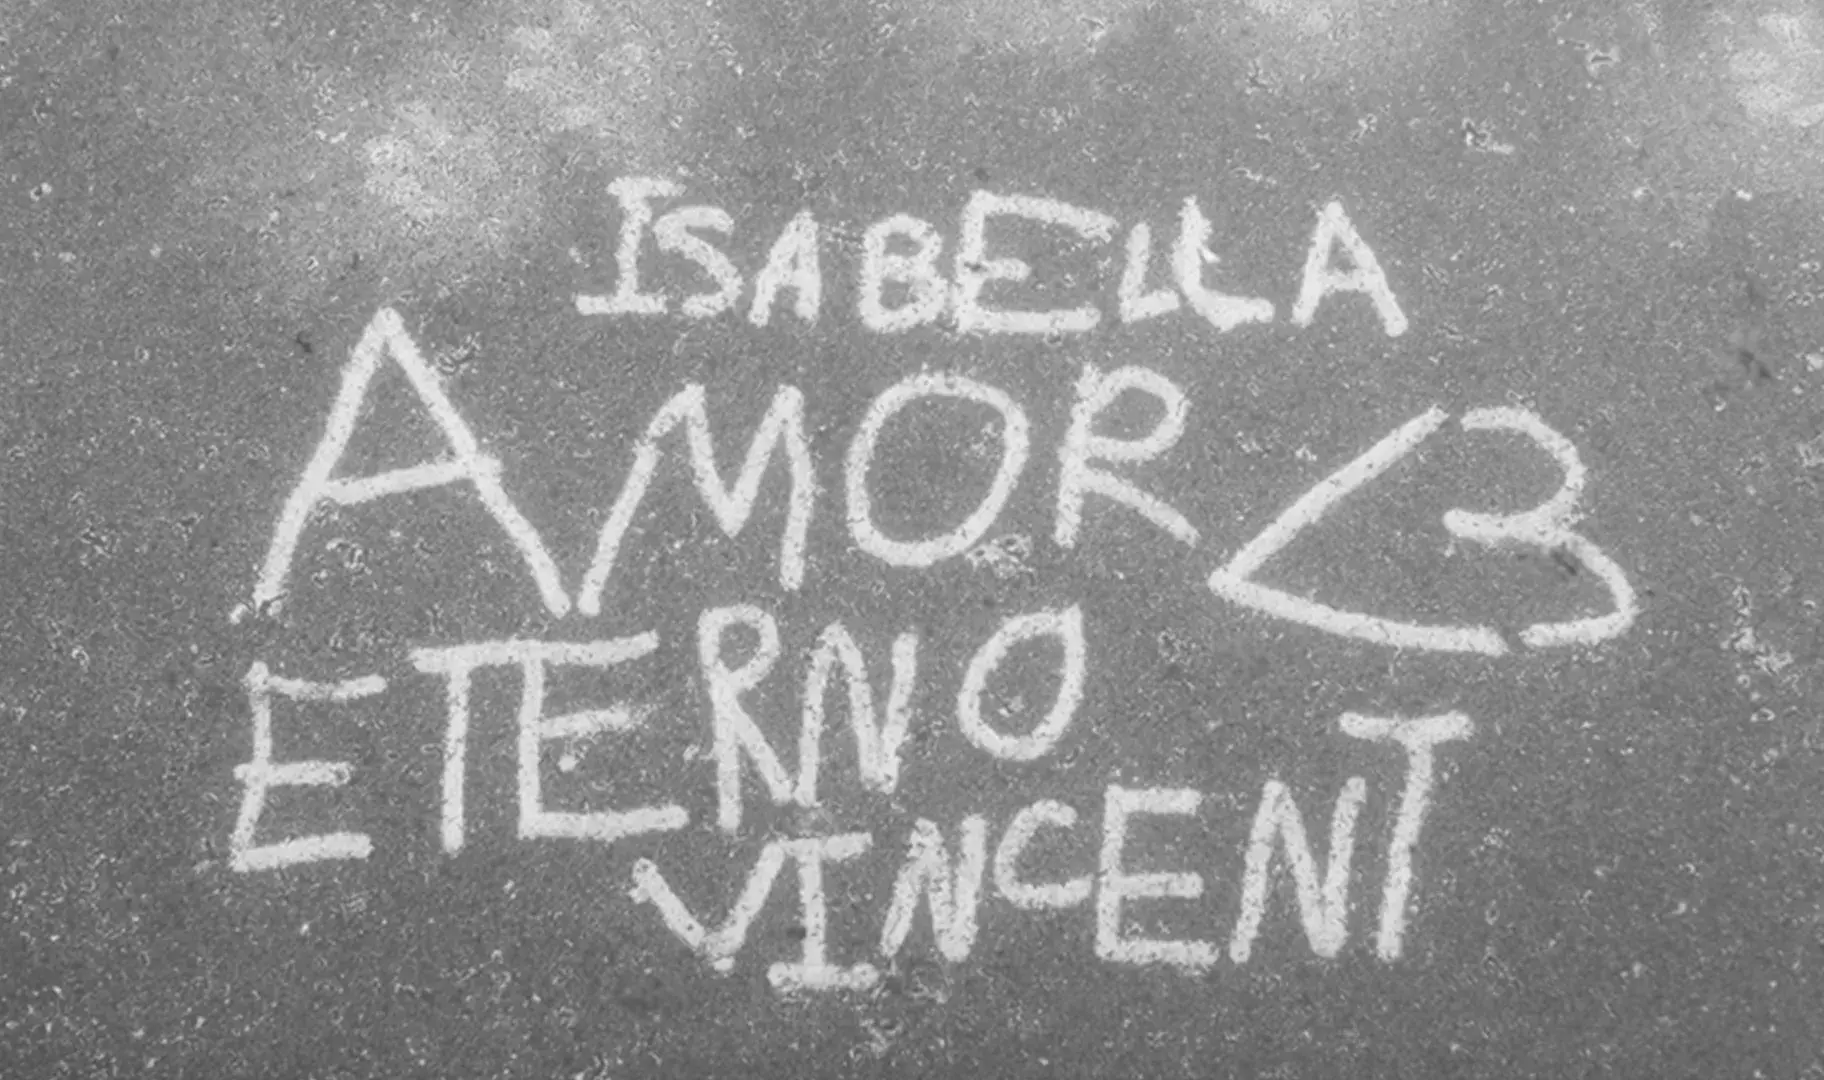 ISABELLA
AMOR <3
ETERNO
VINCENT